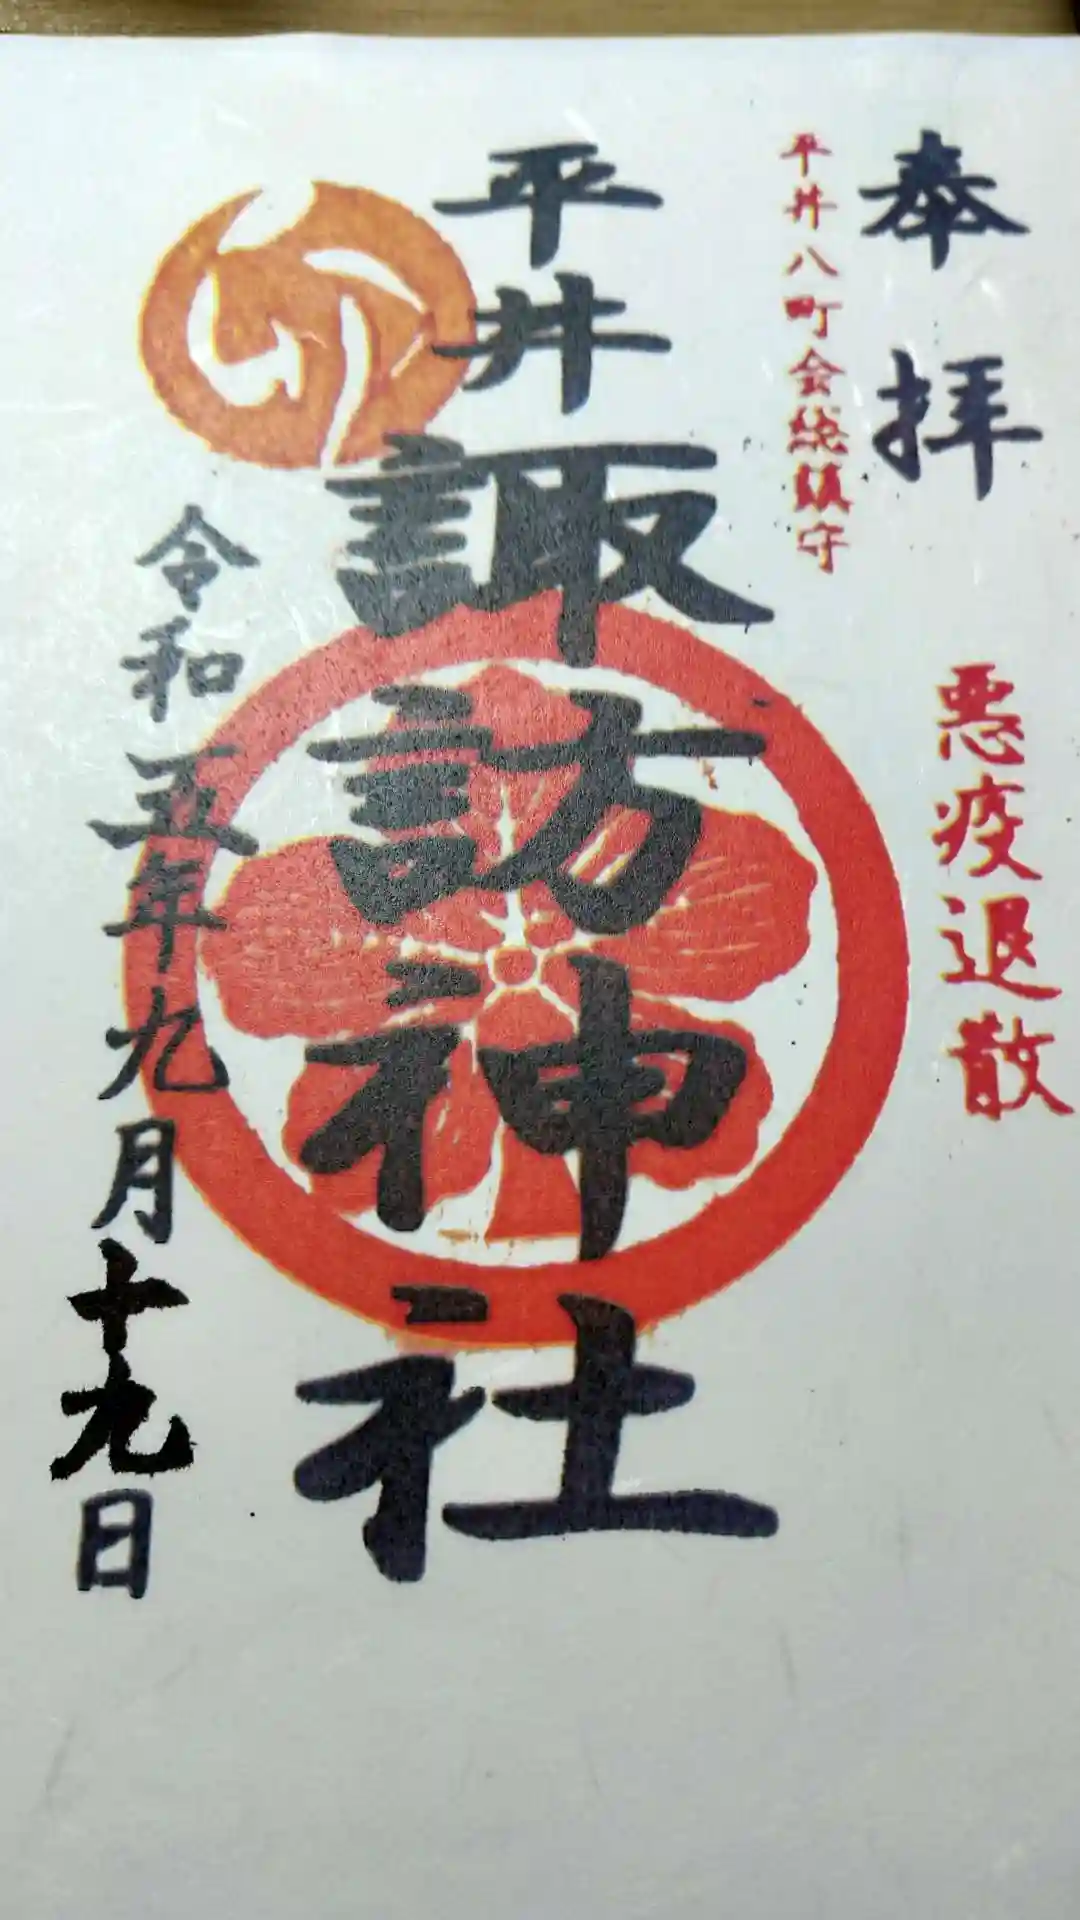 奉拝
平井八町会総鎮守
悪疫退散
平井
諏訪神社
令和五年九月十九日